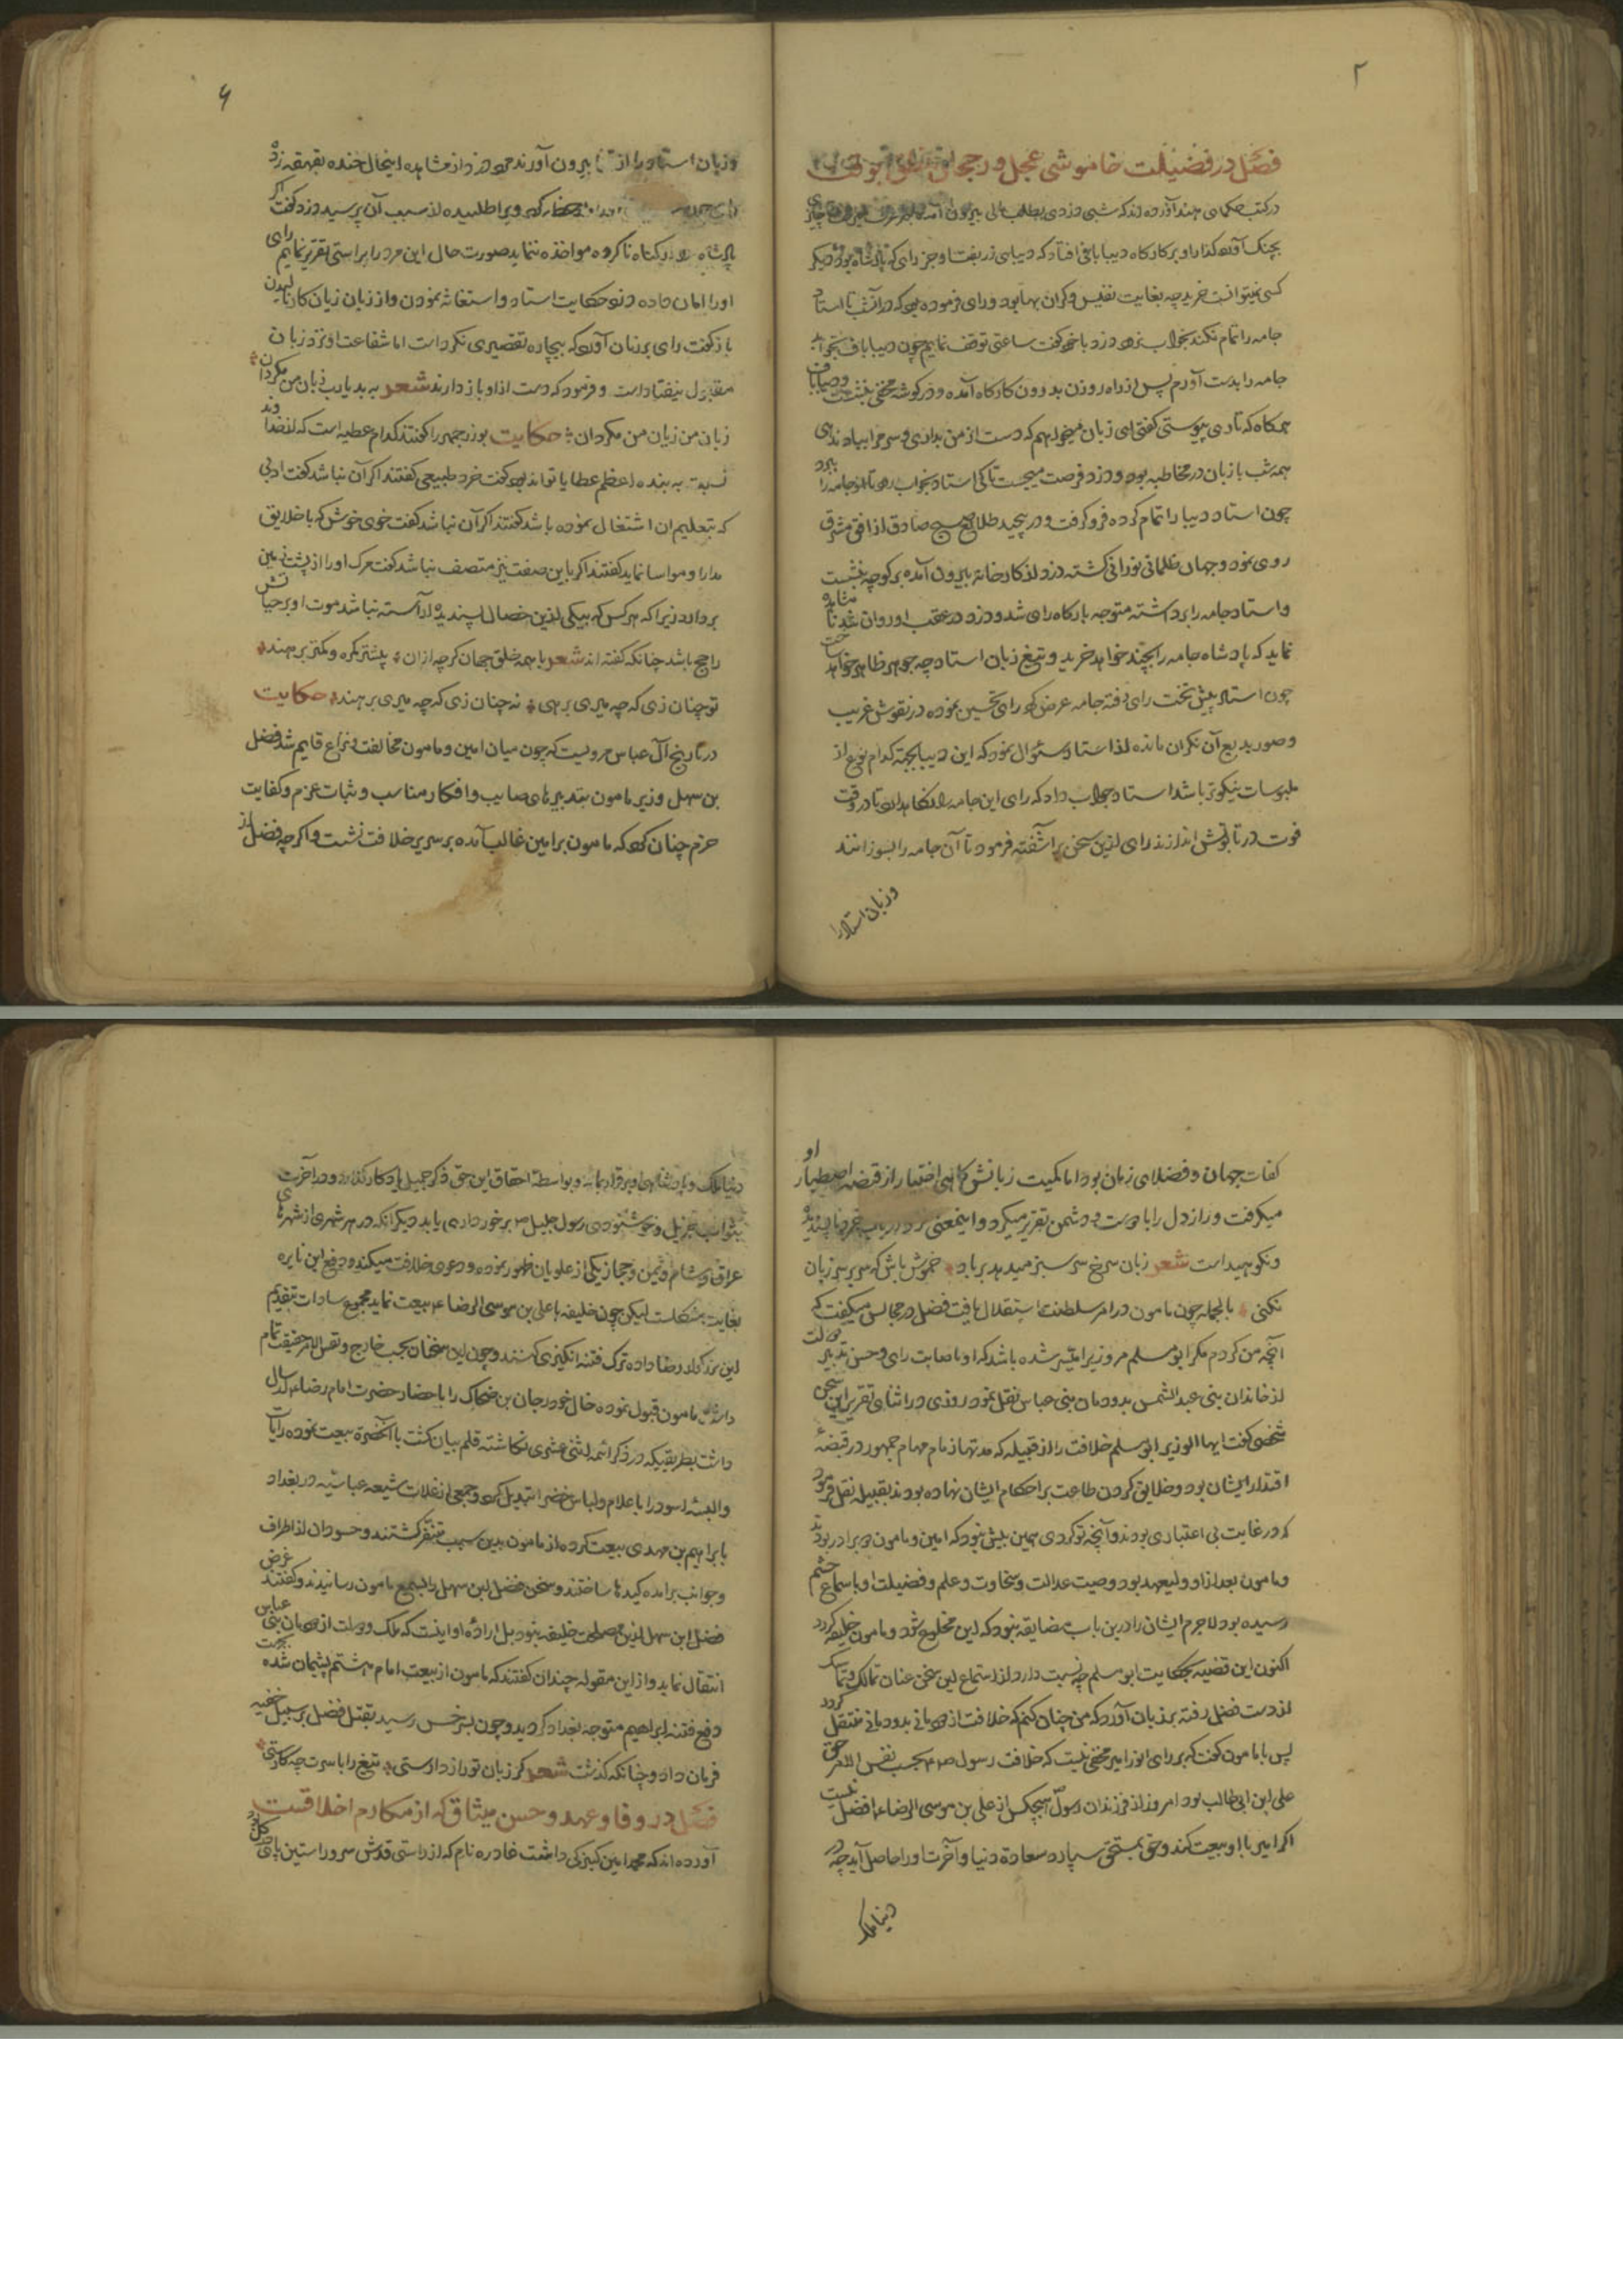 ۲
فصل در فضیلت خاموشی عجل و رجحان
در کتب حکمای هند آورده اند که شبی دزدی بطلب مالی بیرون آمده
بچنک آورد کذار او بر کارکاه دیبا بافی افتاد که دیبای زربفت و جز رای که پادشاه بود دیکر
کسی نمیتوانست خرید چه بغایت نفیس و کران بها بود و رای فرموده بود که در آنشب تا استاد
جامه را تمام نکند بخواب نرود دزد با خود کفت ساعتی توقف نمایم چون دیبا باف بخوابد
جامه را بدست آورم پس از راه روزن بدرون کارکاه آمده و در کوشه مخفی بنشست و دیباباف
هر کاه که تاری پیوستی کفتی ای زبان میخواهم که دست از من بداری و سر مرا بباد ندهی
همه شب با زبان در مخاطبه بود و دزد فرصت میجست تا کی استاد بخواب رود تا او جامه را ببرد
چون استاد دیبا را تمام کرده فرو کرفت و در پیچید طلایع صبح صادق از افق مشرق
روی نمود و جهان ظلمانی نورانی کشته دزد از کارخانه بیرون آمده بر کوچه بنشست
و استاد جامه را برداشته متوجه بارکاه رای شد و دزد در عقب او روان شد تا مشاهده
نماید که پادشاه جامه را بچند خواهد خرید و تیغ زبان استاد چه جوهر ظاهر خواهد ساخت
چون استاد پیش تخت رای رفته جامه عرض کرد رای تحسین نموده در نقوش غریب
و صور بدیع آن نکران مانده از استاد سئوال نمود که این دیبا بجهة کدام نوع از
ملبوسات نیکوتر باشد استاد جواب داد که رای این جامه را نکاهدارد تا در وقت
فوت در تابوتش اندازند رای ازین سخن بر آشفته فرمود تا آن جامه را بسوزانند
وزبان استاد را
۴
وزبان استاد را از قفا بیرون آورند دزد از مشاهده اینحال خنده بقهقهه زد
رای ویرا طلبیده از سبب آن پرسید دزد کفت اکر
پادشاه مرا بکناه ناکرده مواخذه ننماید صورت حال این مرد را براستی تقریر نمایم رای
اورا امان داده دزد حکایت استاد و استغاثه نمودن و از زبان زیان کار نالیدن
باز کفت رای بر زبان آورد که بیچاره تقصیری نکرده است اما شفاعت او نزد زبان
مقبول نیفتاد است و فرمود که دست از او باز دارند شعر به بد یارب زبان من مکردان
زبان من زیان من مکردان حکایت بوزرجمهر را کفتند کدام عطیه است که از خداوند
نسبت به بنده اعظم عطایا تواند بود کفت خرد طبیعی کفتند اکر آن نباشد کفت ادبی
که بتعلیم ان اشتغال نموده باشد کفتند اکر آن نباشد کفت خوی خوش که با خلایق
مدارا و مواسا نماید کفتند اکر باین صفت نیز متصف نباشد کفت مرک اورا از پشت زمین
بردارد زیرا که هر کس که بیکی ازین خصال پسندیده آراسته نباشد موت او بر حیاتش
راجح باشد چنانکه کفته اند شعر با همه خلق جهان کرچه ازان پیشتر بکره و کمتر برهند
تو چنان زی که چه میری برهی نه چنان زی که چه میری برهند حکایت
در تاریخ آل عباس مرویست که چون میان امین و مامون مخالفت و نزاع قایم شد فضل
بن سهل وزیر مامون بتدبیرهای صایب و افکار مناسب و ثبات عزم و کفایت
حزم چنان کرد که مامون بر امین غالب آمده بر سریر خلافت نشست و اکر چه فضل از
کفات جهان و فضلای زمان بود اما کمیت زبانش کاهی اختیار از قبضه اصطبار او
میکرفت و راز دل را با دوست و دشمن تقریر میکرد و اینمعنی نزد ارباب خرد ناپسندیده
و نکوهیده است شعر زبان سرخ سر سبز میدهد بر باد خموش باش که سر بر سر زبان
نکنی بالجمله چون مامون در امر سلطنت استقلال یافت فضل در مجالس میکفت که
آنچه من کردم مکر ابومسلم مروزیرا میسر شده باشد که او باصابت رای و حسن تدبیر دولت
از خاندان بنی عبد الشمس بدودمان بنی عباس نقل نمود روزی در اثنای تقریر این سخن
شخصی کفت ایها الوزیر ابومسلم خلافت را از قبیله که مدتها زمام مهام جمهور در قبضه
اقتدار ایشان بود و خلایق کردن طاعت بر احکام ایشان نهاده بودند بقبیله نقل فرمود
که در غایت بی اعتباری بودند و آنچه تو کردی همین بیش نبود که امین و مامون دو برادر بودند
و مامون بعد از او ولیعهد بود و صیت عدالت و سخاوت و علم و فضیلت او باسماع حشم
رسیده بود لاجرم ایشان را درین باب مضایقه نبود که این مخلوع شود و مامون خلیفه کردد
اکنون این قضیه بحکایت ابومسلم چه نسبت دارد از استماع این سخن عنان تمالک و تماسک
از دست فضل رفته بر زبان آورد که من چنان کنم که خلافت از دودمانی بدودمانی منتقل کردد
پس با مامون کفت که بر رای انور امیر مخفی نیست که خلافت رسول ص بحسب نفس الامر حق
علی ابن ابی طالب بود امروز از فرزندان رسول هیچکس از علی بن موسی الرضا ع افضل نیست
اکر امیر با او بیعت کند و حق بمستحق سپارد سعادة دنیا و آخرت او را حاصل آید چه در
دنیا ملک
دنیا ملک و پادشاهی او برقرار بماند و بواسطه احقاق این حق ذکر جمیل یادکار کذارد و در آخرت
بثواب جزیل و خوشنودی رسول جلیل ص برخورداری یابد دیکر انکه در هر شهری از شهرهای
عراق و شام و یمن و حجاز یکی از علویان ظهور نموده و دعوی خلافت میکند و دفع این نایره
بغایت مشکلست لیکن چون خلیفه با علی بن موسی الرضا ع بیعت نماید مجموع سادات بتقدیم
این بزرکوار رضا داده ترک فتنه انکیزی کنند و چون این سخنان بحسب خارج و نفس الامر حقیقت تمام
داشت مامون قبول نموده خال خود رجان بن ضحاک را باحضار حضرت امام رضا ع ارسال
داشت بطریقیکه در ذکر ائمه اثنی عشری نکاشته قلم بیان کشت با آنحضرة بیعت نموده رایات
و البسه اسود را باعلام و لباس خضر تبدیل کرد و جمعی از غلات شیعه عباسیه در بغداد
با براهیم بن مهدی بیعت کرده از مامون بدین سبب متنفر کشتند و حسودان از اطراف
و جوانب برامده کیدها ساختند و سخن فضل ابن سهل را بسمع مامون رسانیدند و کفتند غرض
فضل ابن سهل ازین مصلحت خلیفه نبود بل اراده او اینست که ملک و دولت از دودمان بنی عباس
انتقال نماید و از این مقوله چندان کفتند که مامون از بیعت امام هشتم پشیمان شده بجهت
دفع فتنه ابراهیم متوجه بغداد کردید و چون بسرخس رسید بقتل فضل بر سبیل خفیه
فرمان داد و چنانکه کذشت شعر کر زبان تو راز داراستی تیغ را با سرت چه کاراستی
فصل در وفا و عهد و حسن میثاق که از مکارم اخلاقست
آورده اند که محمد امین کنیزکی داشت غادره نام که از راستی قدش سرو راستین پای در کل